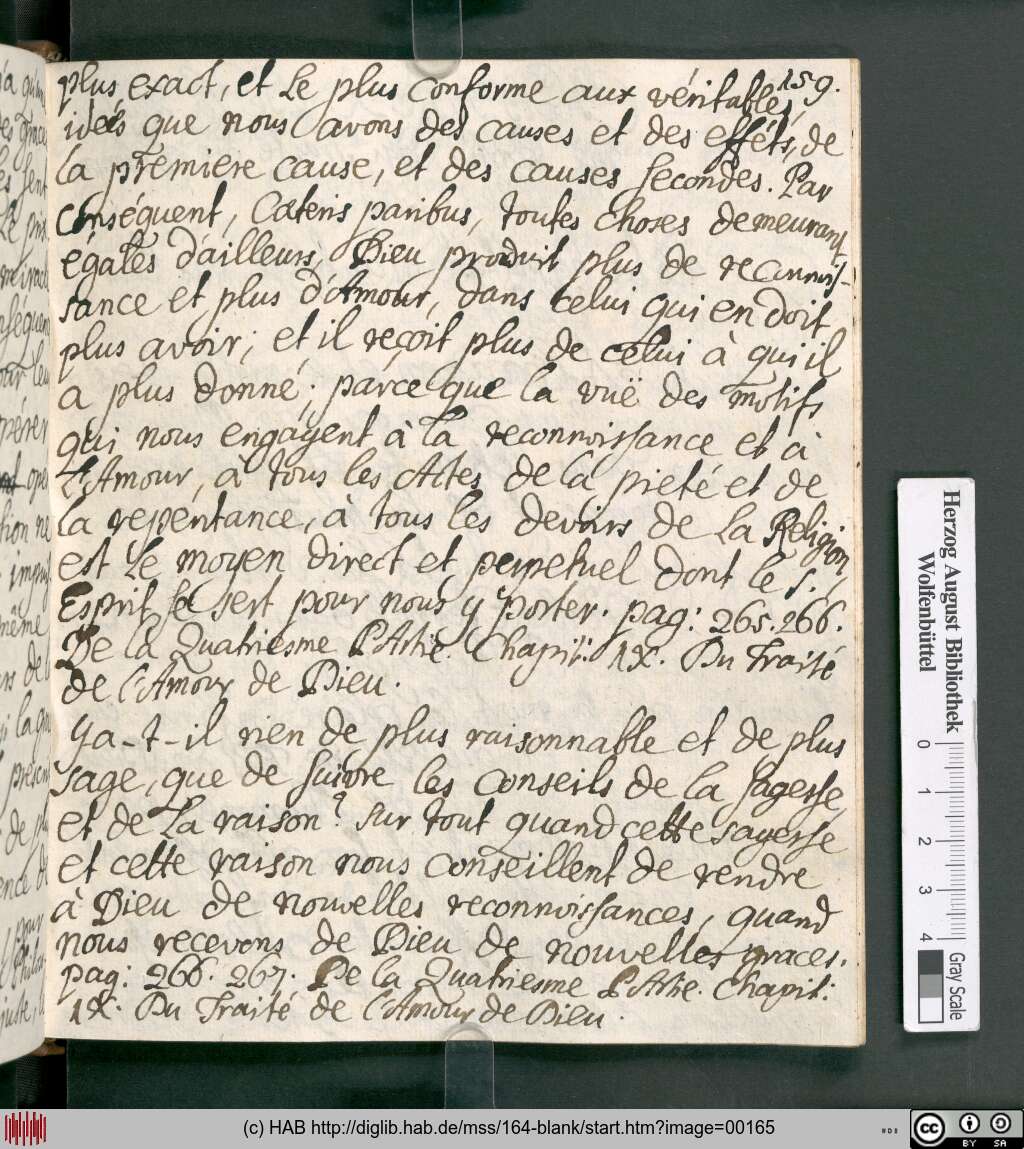 159.
plus exact, et le plus conforme aux véritables
ideés que nous avons des causes et des efféts, de
la prémiere cause, et des causes secondes. Par
conséquent, Cateris paribus, toutes choses demeurant
égales d'ailleurs, Dieu produit plus de reconnois-
sance et plus d'Amour, dans celui qui en doit
plus avoir; et il reçoit plus de celui à qui il
a plus donné; parce que la vuë des motifs
qui nous engagent à la reconnoissance et à
l'Amour, à tous les Actes de la pieté et de
la repentance, à tous les devoirs de la Religion,
est le moyen direct et perpetuel dont le S.
Esprit se sert pour nous y porter. pag: 265. 266.
De la Quatriesme PArtie. Chapit: IX. Du Traité
de l'Amour de Dieu.
Ya-t-il rien de plus raisonnable et de plus
sage, que de suivre les conseils de la sagesse
et de la raison? sur tout quand cette sagesse
et cette raison nous conseillent de rendre
à Dieu de nouvelles reconnoissances, quand
nous recevons de Dieu de nouvelles graces.
pag: 266. 267. De la Quatriesme PArtie. Chapit:
IX. Du Traité de l'Amour de Dieu.
Herzog August Bibliothek
Wolfenbüttel
0 1 2 3 4
Gray Scale
(c) HAB http://diglib.hab.de/mss/164-blank/start.htm?image=00165
cc BY SA